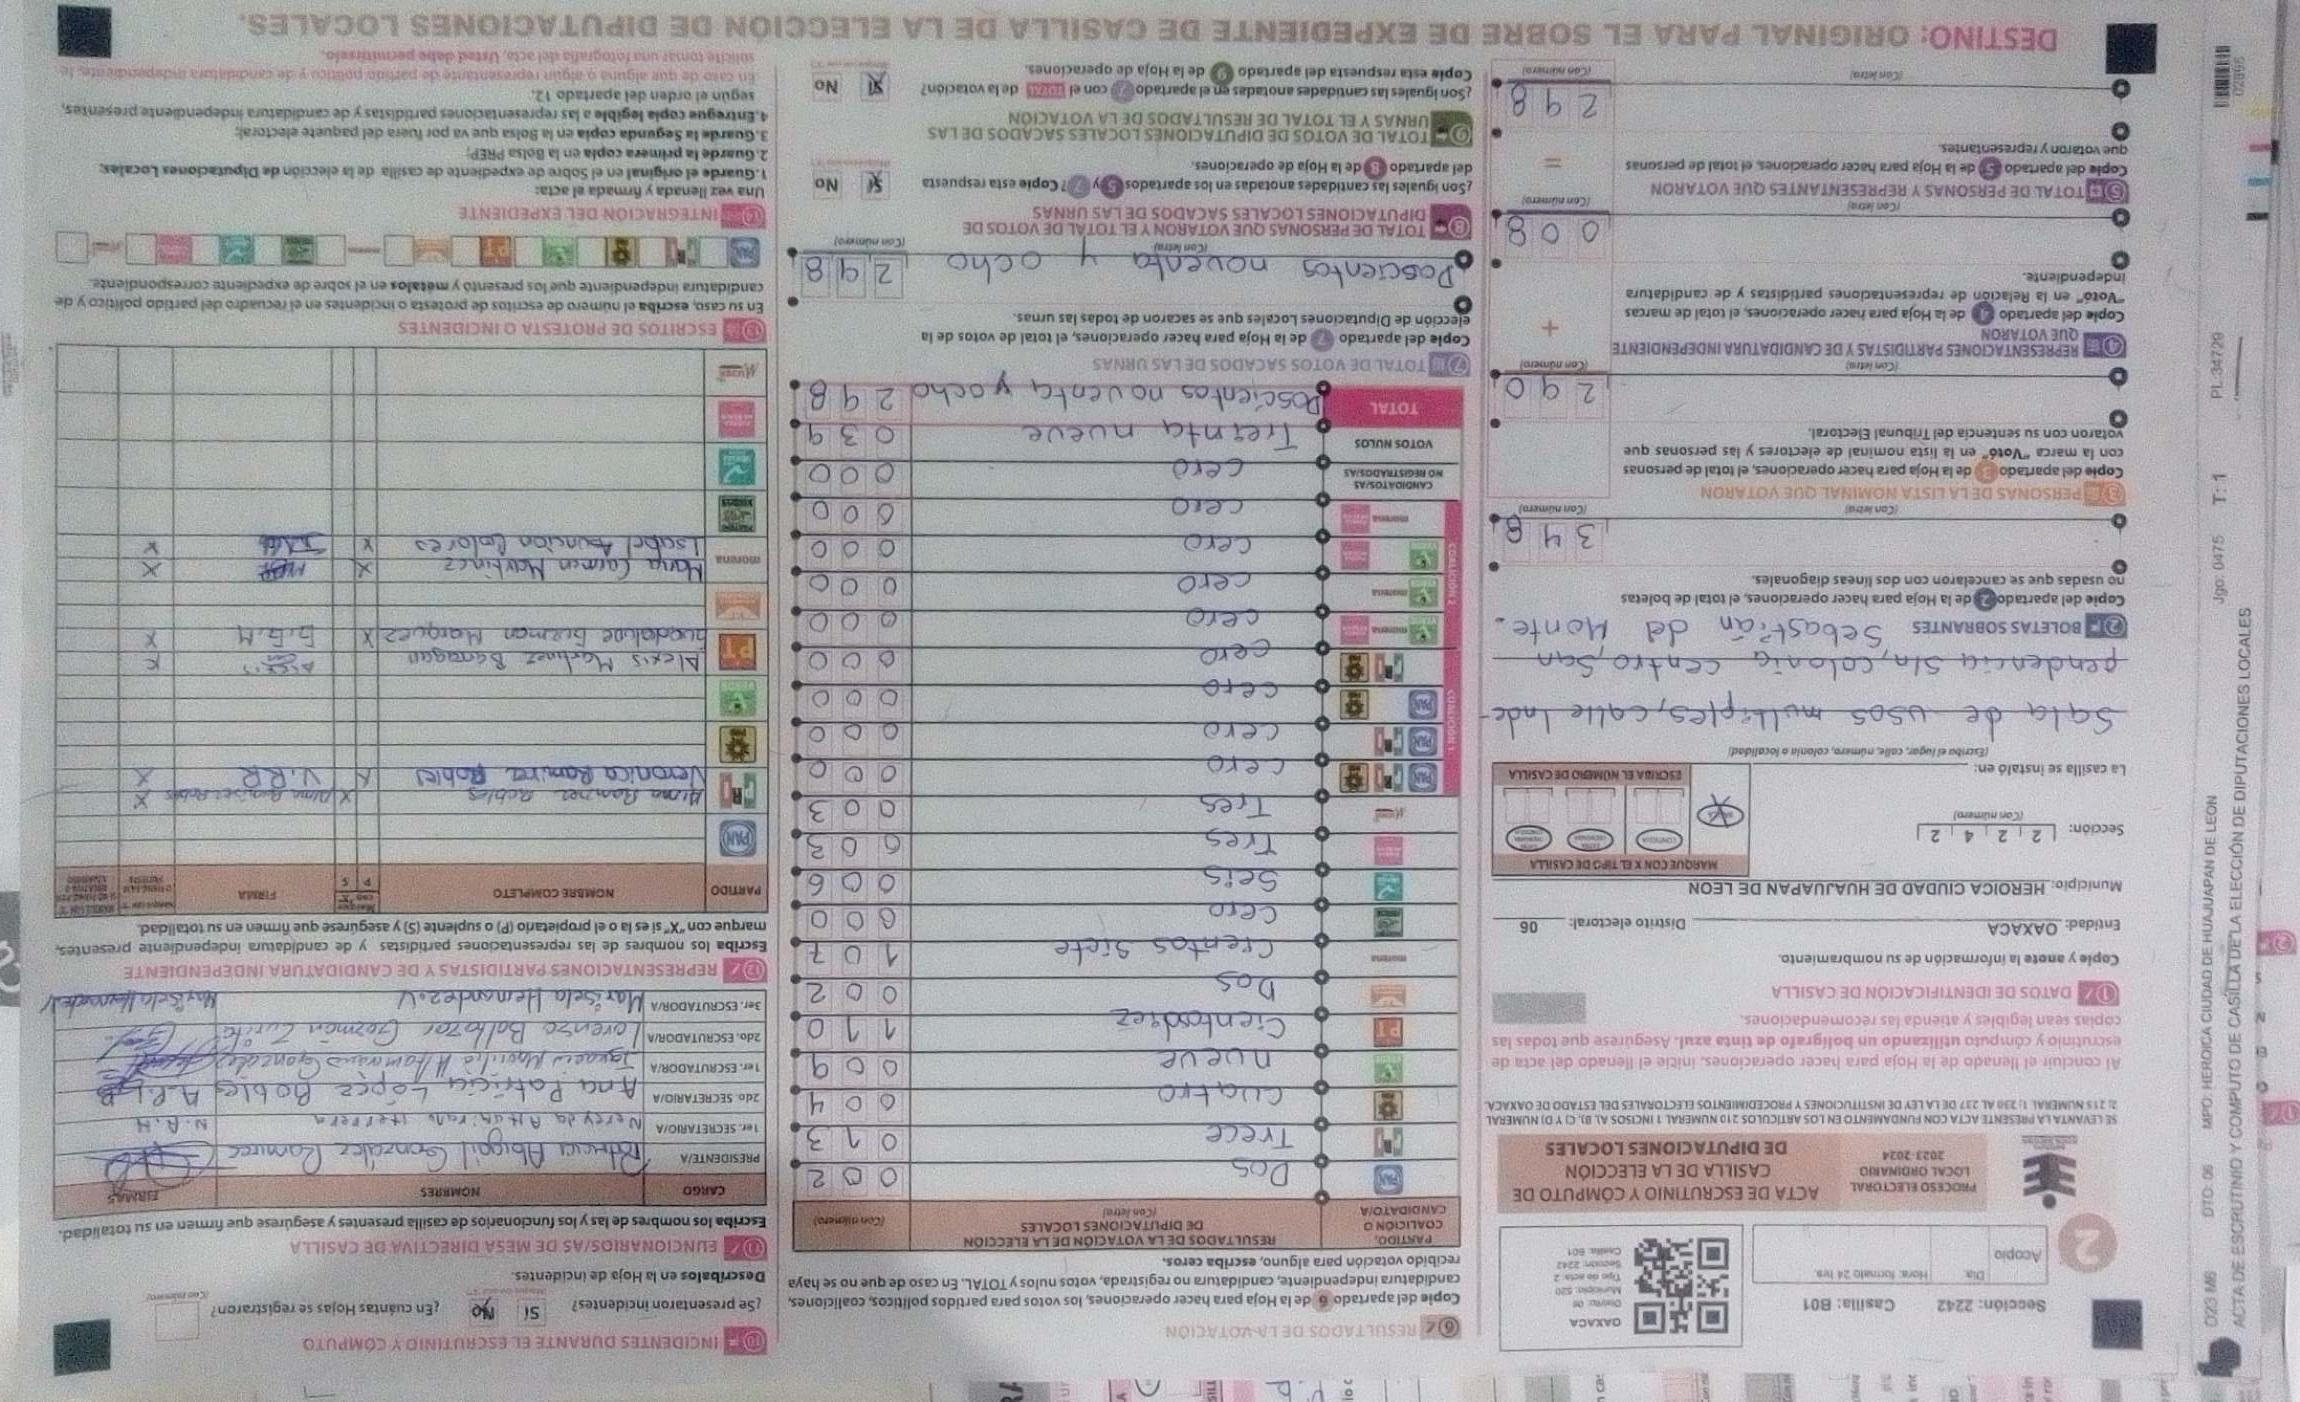 Sección: 2242 Casilla: B01
Acopio
Día: Hora: formato 24 hrs.
OAXACA
Distrito: 06
Municipio: 520
Tipo de acta: 2
Sección: 2242
Casilla: B01
2
PROCESO ELECTORAL
LOCAL ORDINARIO
2023-2024
ACTA DE ESCRUTINIO Y CÓMPUTO DE
CASILLA DE LA ELECCIÓN
DE DIPUTACIONES LOCALES
SE LEVANTA LA PRESENTE ACTA CON FUNDAMENTO EN LOS ARTÍCULOS 210 NUMERAL 1 INCISOS AL B), C) Y D) NUMERAL
2; 215 NUMERAL 1; 230 AL 237 DE LA LEY DE INSTITUCIONES Y PROCEDIMIENTOS ELECTORALES DEL ESTADO DE OAXACA.
Al concluir el llenado de la Hoja para hacer operaciones, inicie el llenado del acta de
escrutinio y cómputo utilizando un bolígrafo de tinta azul. Asegúrese que todas las
copias sean legibles y atienda las recomendaciones.
1 DATOS DE IDENTIFICACIÓN DE CASILLA
Copie y anote la información de su nombramiento.
Entidad: OAXACA Distrito electoral: 06
Municipio: HEROICA CIUDAD DE HUAJUAPAN DE LEON
Sección: 2 2 4 2
(Con número)
MARQUE CON X EL TIPO DE CASILLA
ESCRIBA EL NÚMERO DE CASILLA
La casilla se instaló en:
(Escriba el lugar, calle, número, colonia o localidad)
Sala de usos multiples, calle Inde-
pendencia S/n, colonia centro, San
Sebastián del Monte.
2 BOLETAS SOBRANTES
Copie del apartado 2 de la Hoja para hacer operaciones, el total de boletas
no usadas que se cancelaron con dos líneas diagonales.
348
(Con letra) (Con número)
3 PERSONAS DE LA LISTA NOMINAL QUE VOTARON
Copie del apartado 3 de la Hoja para hacer operaciones, el total de personas
con la marca "Votó" en la lista nominal de electores y las personas que
votaron con su sentencia del Tribunal Electoral.
290
(Con letra) (Con número)
4 REPRESENTACIONES PARTIDISTAS Y DE CANDIDATURA INDEPENDIENTE
QUE VOTARON
Copie del apartado 4 de la Hoja para hacer operaciones, el total de marcas
"Votó" en la Relación de representaciones partidistas y de candidatura
independiente.
+
008
(Con letra) (Con número)
5 TOTAL DE PERSONAS Y REPRESENTANTES QUE VOTARON
Copie del apartado 5 de la Hoja para hacer operaciones, el total de personas
que votaron y representantes.
=
298
(Con letra) (Con número)
6 RESULTADOS DE LA VOTACIÓN
Copie del apartado 6 de la Hoja para hacer operaciones, los votos para partidos políticos, coaliciones,
candidatura independiente, candidatura no registrada, votos nulos y TOTAL. En caso de que no se haya
recibido votación para alguno, escriba ceros.
PARTIDO,
COALICIÓN O
CANDIDATO/A
RESULTADOS DE LA VOTACIÓN DE LA ELECCIÓN
DE DIPUTACIONES LOCALES
(Con letra) (Con número)
PAN Dos 002
PRI Trece 013
PRD Cuatro 004
VERDE nueve 009
PT Cientodiez 110
Dos 002
morena Cientos siete 107
Cero 000
Seis 006
Tres 003
Mujer Tres 003
COALICIÓN 1
PAN PRI PRD cero 000
PAN PRI cero 000
PAN PRD cero 000
PRI PRD cero 000
COALICIÓN 2
VERDE morena cero 000
VERDE morena cero 000
VERDE cero 000
morena cero 000
CANDIDATOS/AS
NO REGISTRADOS/AS cero 000
VOTOS NULOS Treinta nueve 039
TOTAL Doscientos noventa y ocho 298
7 TOTAL DE VOTOS SACADOS DE LAS URNAS
Copie del apartado 7 de la Hoja para hacer operaciones, el total de votos de la
elección de Diputaciones Locales que se sacaron de todas las urnas.
Doscientos noventa y ocho 298
(Con letra) (Con número)
8 TOTAL DE PERSONAS QUE VOTARON Y EL TOTAL DE VOTOS DE
DIPUTACIONES LOCALES SACADOS DE LAS URNAS
¿Son iguales las cantidades anotadas en los apartados 5 y 7? Copie esta respuesta
del apartado 8 de la Hoja de operaciones.
Sí No
9 TOTAL DE VOTOS DE DIPUTACIONES LOCALES SACADOS DE LAS
URNAS Y EL TOTAL DE RESULTADOS DE LA VOTACIÓN
¿Son iguales las cantidades anotadas en el apartado 7 con el TOTAL de la votación?
Copie esta respuesta del apartado 9 de la Hoja de operaciones.
Sí No
10 INCIDENTES DURANTE EL ESCRUTINIO Y CÓMPUTO
¿Se presentaron incidentes? Sí No ¿En cuántas Hojas se registraron?
(Con número)
Descríbalos en la Hoja de incidentes.
11 FUNCIONARIOS/AS DE MESA DIRECTIVA DE CASILLA
Escriba los nombres de las y los funcionarios de casilla presentes y asegúrese que firmen en su totalidad.
CARGO NOMBRES FIRMAS
PRESIDENTE/A Patricia Abigail González Ramirez
1er. SECRETARIO/A Nereyda Altamirano Herrera N.A.H
2do. SECRETARIO/A Ana Patricia López Robles A.P.L.R
1er. ESCRUTADOR/A González
2do. ESCRUTADOR/A Lorenzo Baltazar Guzmán Zurita
3er. ESCRUTADOR/A Marisela Hernandez.V Marisela Hernandez V
12 REPRESENTACIONES PARTIDISTAS Y DE CANDIDATURA INDEPENDIENTE
Escriba los nombres de las representaciones partidistas y de candidatura independiente presentes,
marque con "X" si es la o el propietario (P) o suplente (S) y asegúrese que firmen en su totalidad.
PARTIDO NOMBRE COMPLETO P S FIRMA
PAN
PRI Alma Ramirez Robles X Alma Ramirez Robles X
Veronica Ramirez Robles X V.R.R X
PRD
VERDE
PT Alexis Martinez Barragan Alexis X
Guadalupe Guzman Marquez X G.G.M X
morena Maria Carmen Martinez X X
Isabel Asuncion Dolores X X
Mujer
13 ESCRITOS DE PROTESTA O INCIDENTES
En su caso, escriba el número de escritos de protesta o incidentes en el recuadro del partido político y de
candidatura independiente que los presentó y métalos en el sobre de expediente correspondiente.
PAN PRI PRD VERDE PT morena
14 INTEGRACIÓN DEL EXPEDIENTE
Una vez llenada y firmada el acta:
1. Guarde el original en el Sobre de expediente de casilla de la elección de Diputaciones Locales;
2. Guarde la primera copia en la Bolsa PREP;
3. Guarde la Segunda copia en la Bolsa que va por fuera del paquete electoral;
4. Entregue copia legible a las representaciones partidistas y de candidatura independiente presentes,
según el orden del apartado 12.
En caso de que alguna o algún representante de partido político y de candidatura independiente, le
solicite tomar una fotografía del acta, Usted debe permitírselo.
DESTINO: ORIGINAL PARA EL SOBRE DE EXPEDIENTE DE CASILLA DE LA ELECCIÓN DE DIPUTACIONES LOCALES.
O23 M6 DTO: 06 MPO: HEROICA CIUDAD DE HUAJUAPAN DE LEON Jgo: 0475 T: 1 PL:34729
ACTA DE ESCRUTINIO Y COMPUTO DE CASILLA DE LA ELECCIÓN DE DIPUTACIONES LOCALES
02895